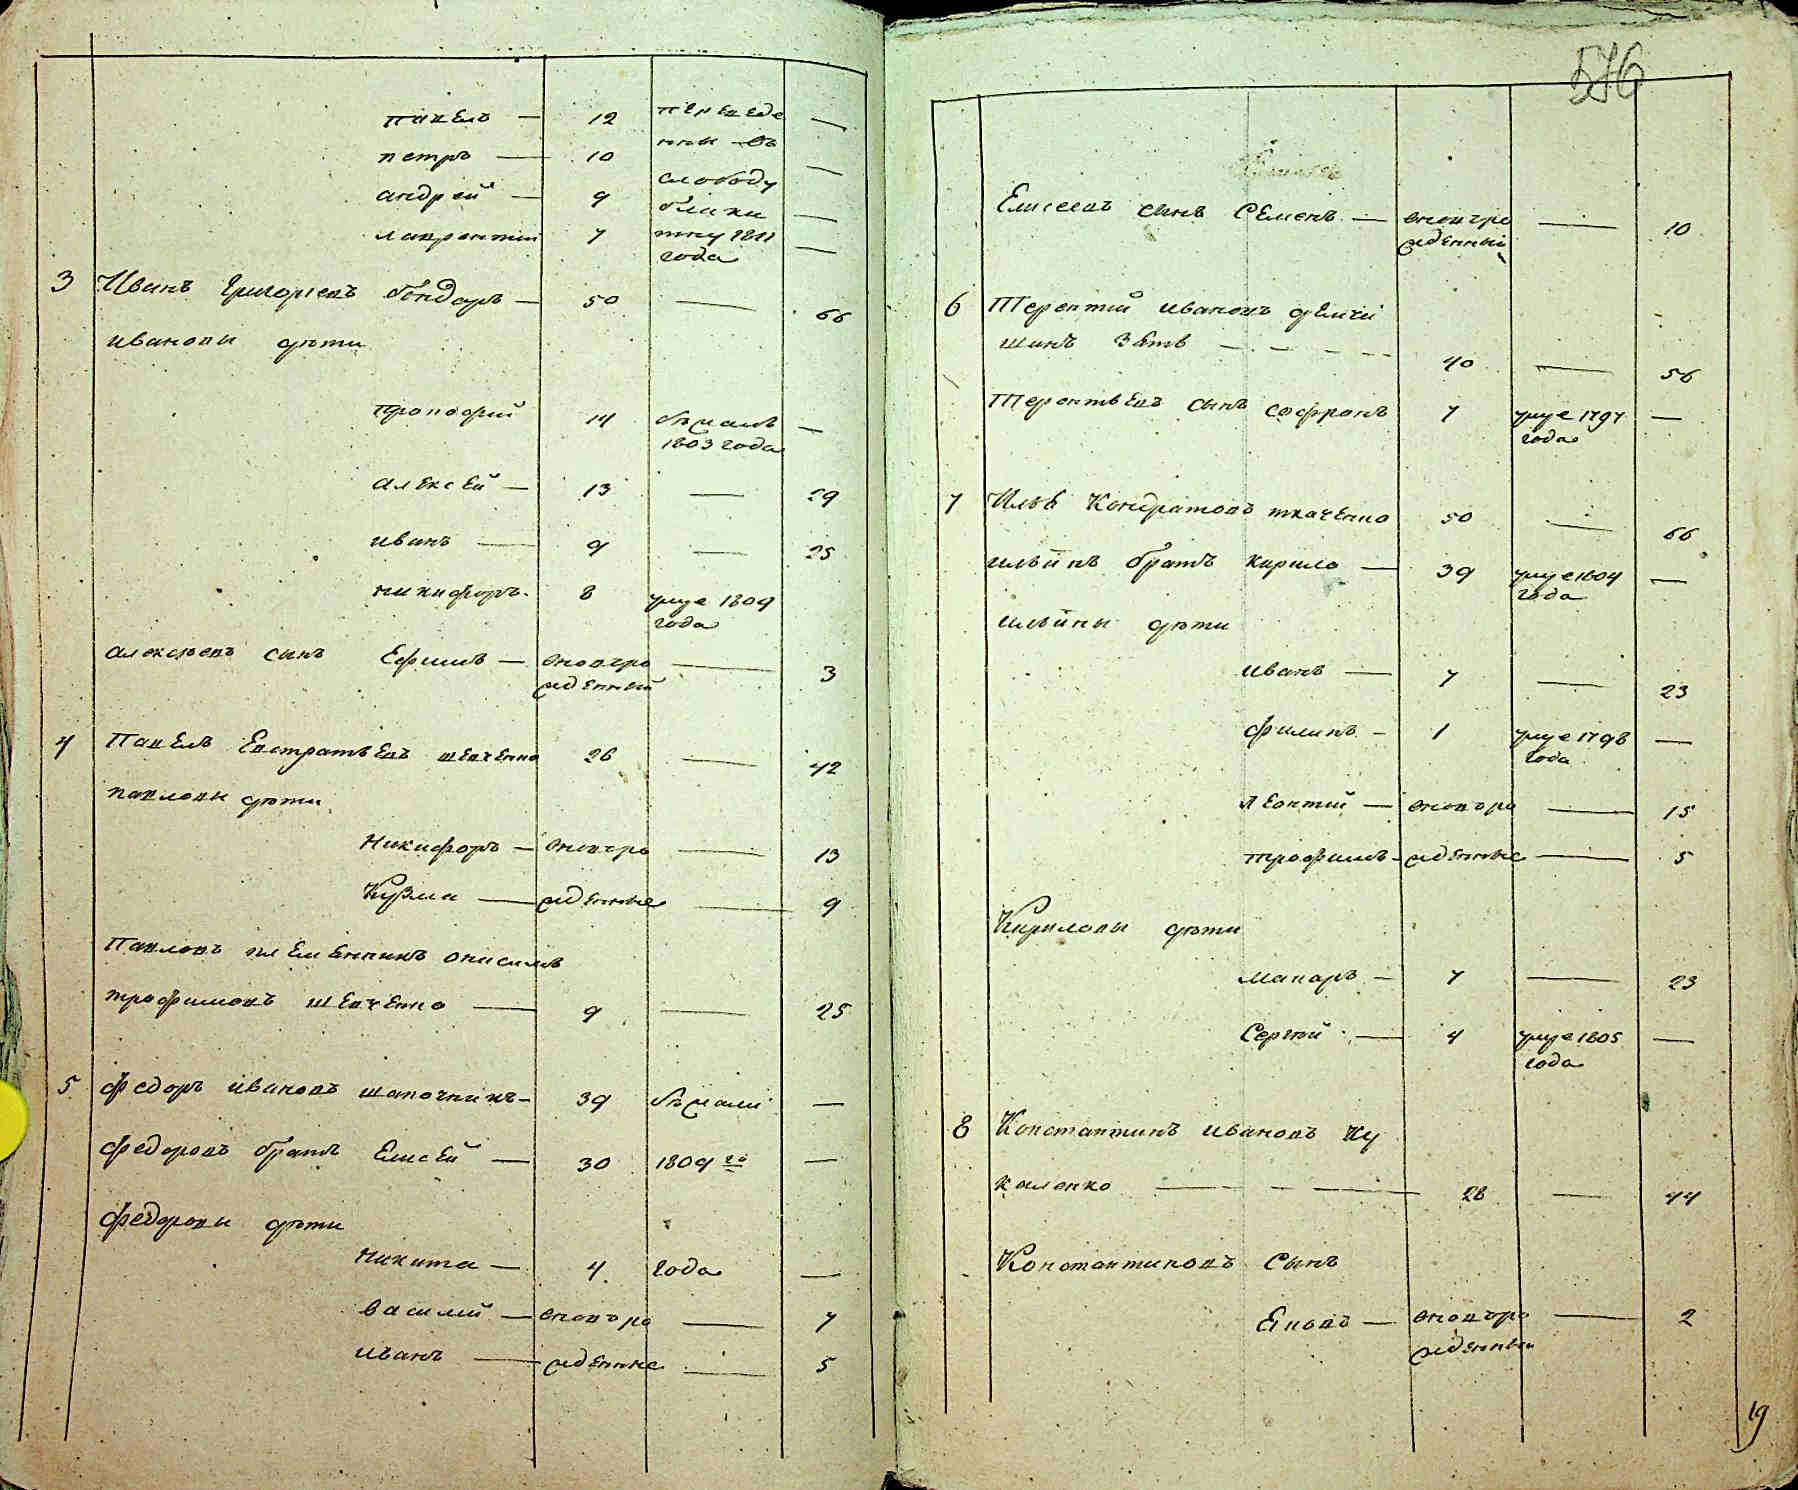 павелъ — 12 переведе —
петръ — 10 нны въ —
андрей — 9 слободу —
лаврентий 7
тну 1811 —
года
3 Иванъ Григорьевъ бондарь — 50 — 66
ивановы дѣти
прокофий 14 бѣжалъ —
1803 года
алексѣй — 13 — 29
иванъ — 9 — 25
никифоръ 8 умре 1809
года
алексѣевъ сынъ Ефимъ — вновьро — 3
жденный
4 Павелъ Евстратьевъ шевченко 26 — 42
павловы дѣти
Никифоръ — вновьро — 13
Кузма — жденные — 9
Павловъ племенникъ анисимъ
трофимовъ шевченко — 9 — 25
5 федоръ ивановъ шапочникъ — 39 бѣжали —
федоровъ братъ Елисей — 30 1809 го —
федоровы дѣти
никита — 4 года —
василий — вновьро — 7
иванъ — жденные — 5
576
Елисеевъ сынъ Семенъ — вновьро — 10
жденный
6 Терентий ивановъ
шинъ зять — 40 — 56
Терентьевъ сынъ софронъ 7 умре 1797 —
года
7 Илья Кондратовъ ткаченко 50 — 66
ильинъ братъ кирило — 39 умре 1804 —
года
ильины дѣти
иванъ — 7 — 23
филипъ — 1 умре 1798 —
года
леонтий — вновьро — 15
трофимъ — жденные — 5
Кириловы дѣти
макаръ — 7 — 23
Сергѣй — 4 умре 1805 —
года
8 Константинъ ивановъ ку
каленко — 28 — 44
Константиновъ сынъ
Яковъ — вновьро — 2
жденный
19